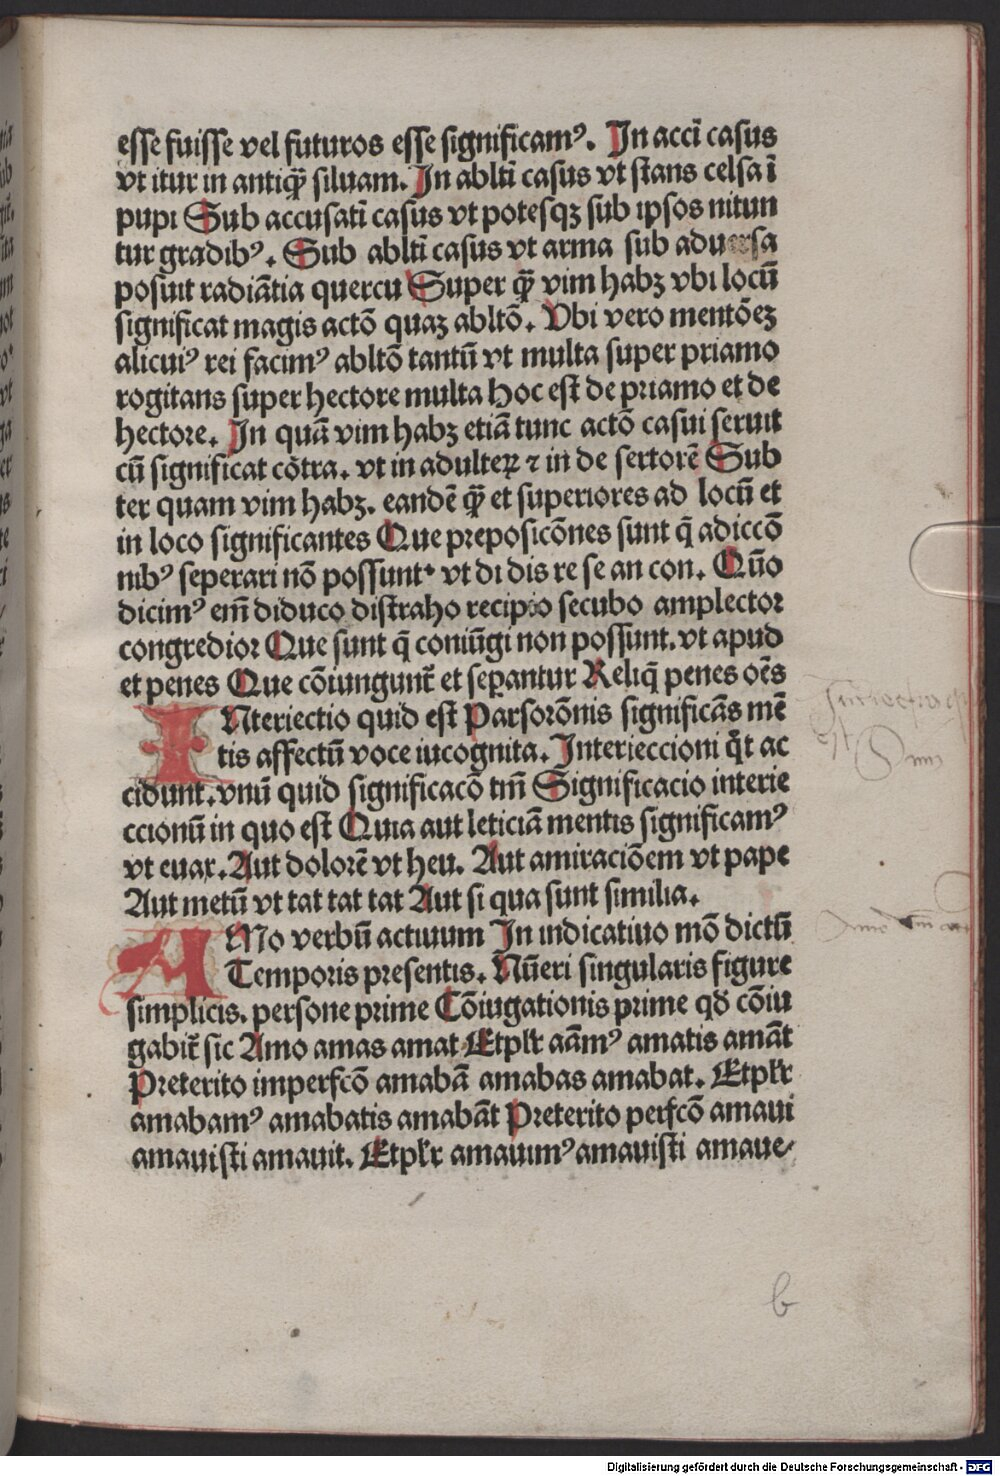 esse fuisse vel futuros esse significamꝰ. In accĩ casus
vt itur in antiqꝫ̃ siluam. In abltĩ casus vt stans celsa ĩ
pupi Sub accusatĩ casus vt potesqꝫ sub ipsos nitun
tur gradibꝰ. Sub abltĩ casus vt arma sub aduersa
posuit radiãtia quercu Super qꝫ̃ vim habꝫ vbi locũ
significat magis actõ quaꝫ abltõ. Vbi vero mentõeꝫ
alicuiꝰ rei facimꝰ abltõ tantũ vt multa super priamo
rogitans super hectore multa Hoc est de priamo et de
hectore. In quã vim habꝫ etiã tunc actõ casui seruit
cũ significat cõtra. vt in adulteꝝ ⁊ in de sertorẽ Sub
ter quam vim habꝫ. eandẽ qꝫ̃ et superiores ad locũ et
in loco significantes Que preposicõnes sunt q̃ adiccõ
nibꝰ seperari nõ possunt vt di dis re se an con. Quõ
dicimꝰ em̃ diduco distraho recipio secubo amplector
congredior Que sunt q̃ coniũgi non possunt. vt apud
et penes Que cõiungunt̃ et seꝑantur Reliq̃ penes oẽs
INteriectio quid est Parsorõnis significãs mẽ
tis affectũ voce iucognita. Interieccioni q̃t ac
cidunt. vnũ quid significacõ tm̃ Significacio interie
ccionũ in quo est Quia aut leticiã mentis significamꝰ
vt euax. Aut dolorẽ vt heu. Aut amiraciõem vt pape
Aut metũ vt tat tat tat Aut si qua sunt similia.
AMo verbũ actiuum In indicatiuo mõ dictũ
Temporis presentis. Nũeri singularis figure
simplicis. persone prime Cõiugationis prime qđ cõiu
gabit̃ sic Amo amas amat Etplr̃ aãmꝰ amatis amãt
Preterito imperfcõ amabã amabas amabat. Etplr̃
amabamꝰ amabatis amabãt Preterito perfcõ amaui
amauisti amauit. Etplr̃ amauimꝰ amauisti amaue
b
Digitalisierung gefördert durch die Deutsche Forschungsgemeinschaft - DFG